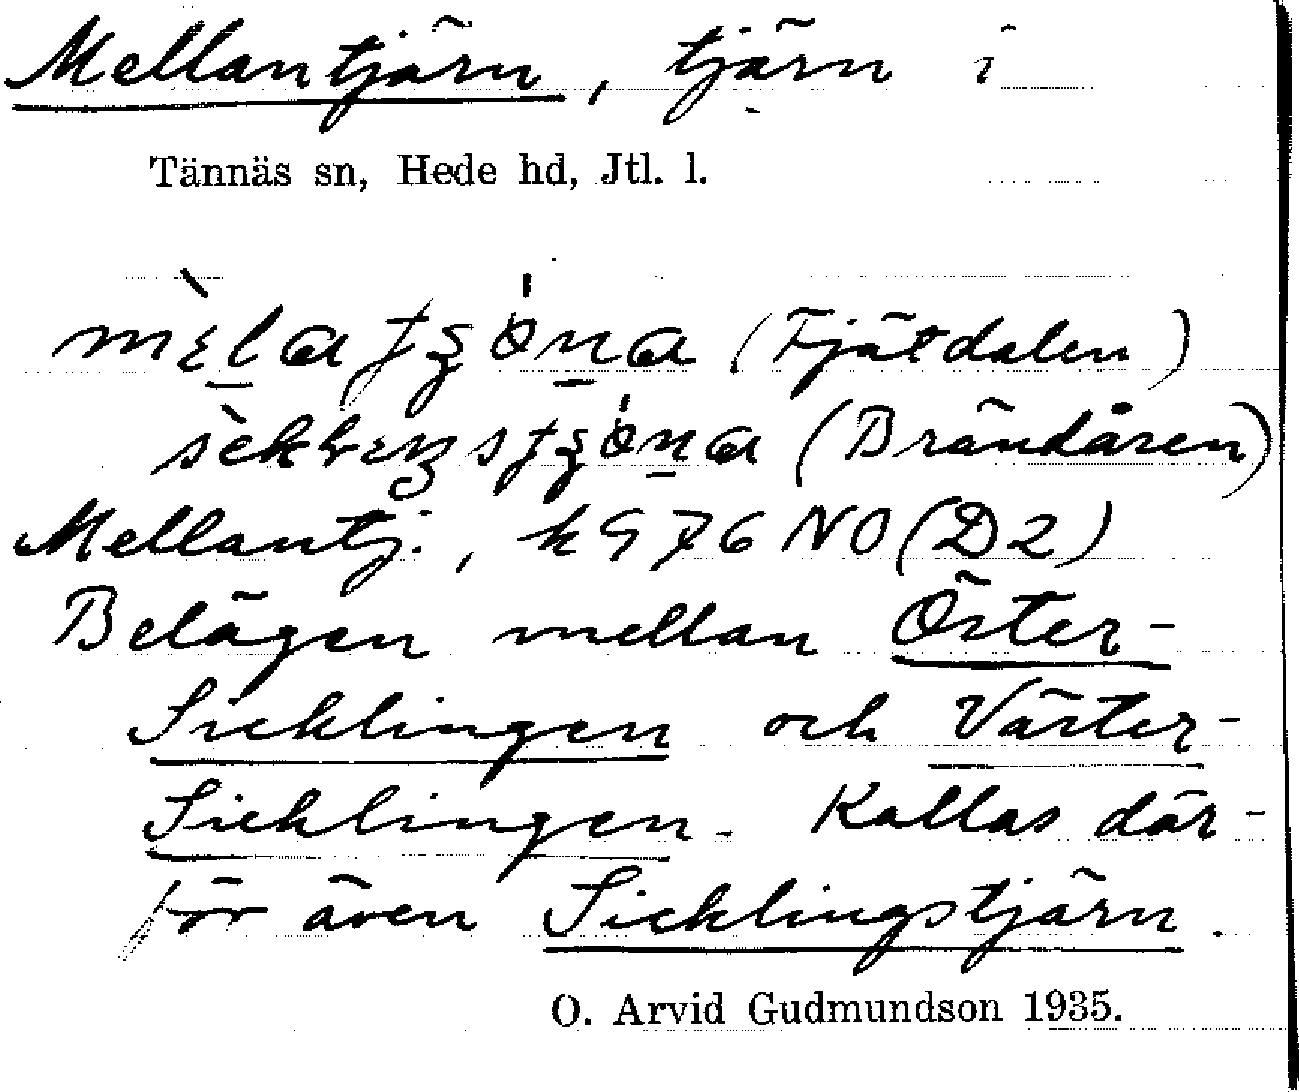 Mellantjärn, tjärn i
Tännäs sn, Hede hd, Jtl. l.
(Fjätdalen)
(Brändåsen)
Mellantj., k 976 NO (D2)
Belägen mellan Öster-
Sicklingen och Väster-
Sicklingen. Kallas där-
för även Sicklingstjärn.
O. Arvid Gudmundson 1935.